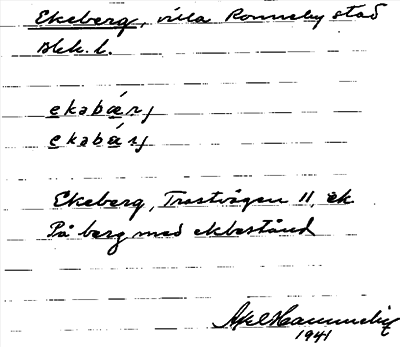 Ekeberg, villa Ronneby stad
Blek. l.
ekabærj
ekabárj
Ekeberg, Trastvägen 11, ek
På berg med ekbestånd
Axel
1941